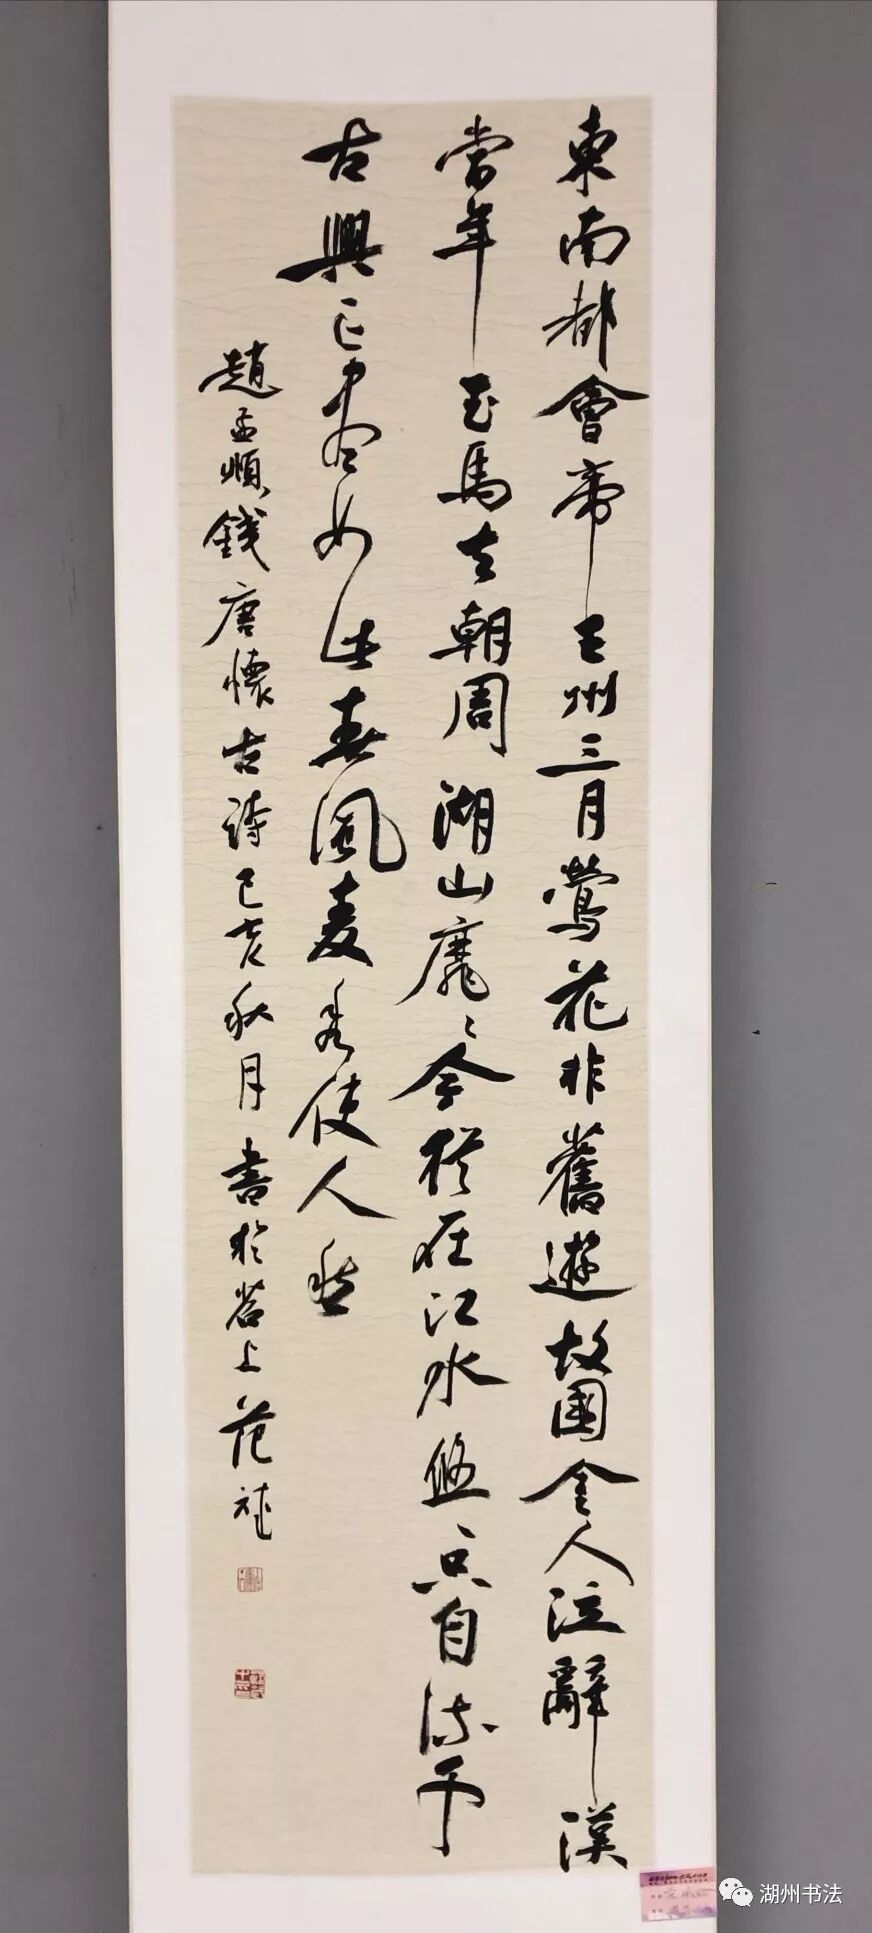 東南都會帝王州三月鶯花非舊遊故國金人泣辭漢
當年玉馬去朝周湖山靡〻今猶在江水悠〻只自流千
古興亡盡如此春風麥秀使人愁
趙孟頫錢唐懷古詩己亥秋月書於苕上范斌
湖州书法